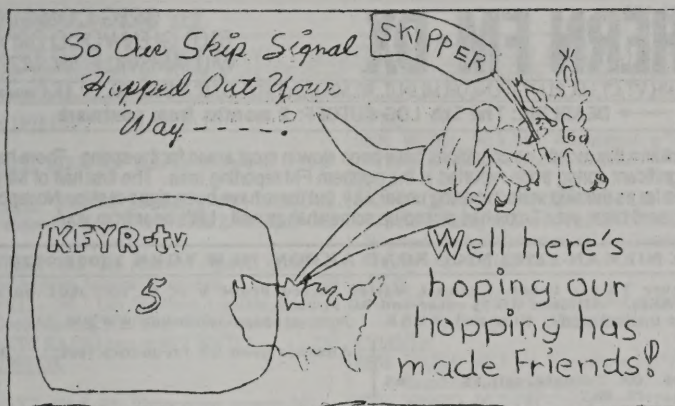 So Our Skip Signal
Hopped Out Your
Way-----?
SKIPPER
KFYR-tv
5
Well here's
hoping our
hopping has
made Friends!